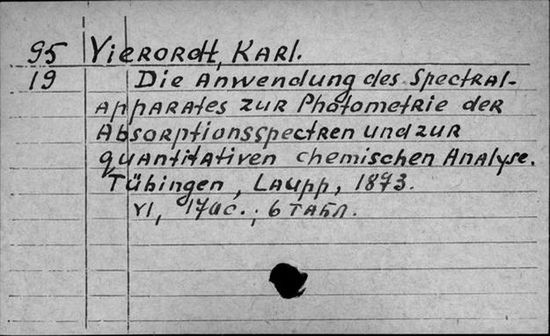 95 Vierordt, Karl.
19 Die Anwendung des Spectral-
apparates zur Photometrie der
Absorptionsspectren und zur
quantitativen chemischen Analyse.
Tübingen, Laupp, 1873.
VI, с.; 6 табл.